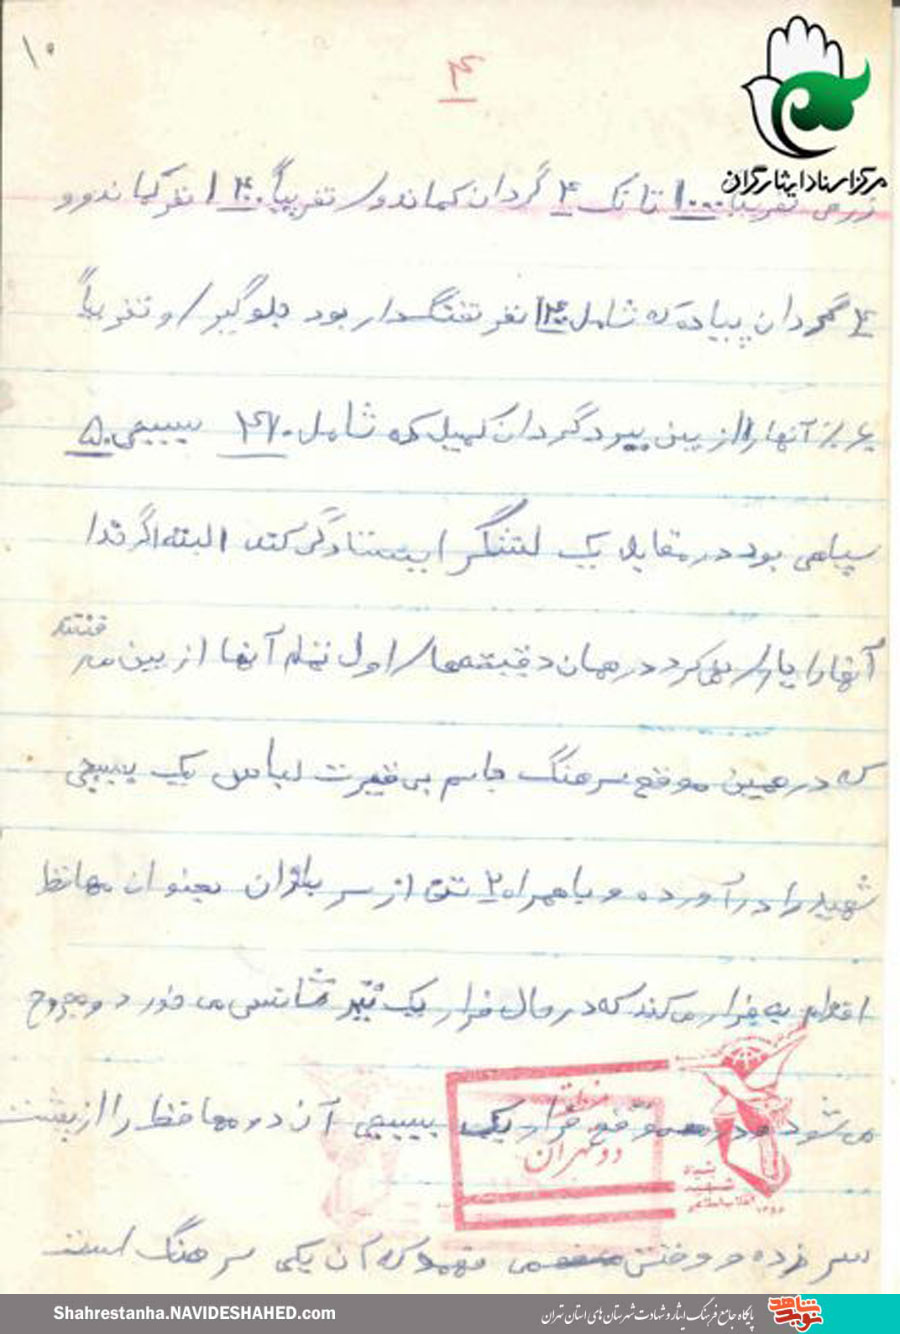 ۱۰
۴
مرکز اسناد ایثارگران
زرهی تقریباً ۱۰۰۰ تانک ۴ گردان کماندو/ تقریباً ۱۴۰۰ نفر کماندوو
۴ گردان پیاده که شامل ۱۴۰۰ نفر تفنگدار بود جلوگیر/ و تقریباً
آنها را از بین ببرد گردان کمیل که شامل ۴۷۰ بسیجی ۵۰
سپاهی بود در مقابل یک لشگر ایستادگی کند البته اگر خدا
آنها را یار/ نمی کرد در همان دقیقه ها/ اول تمام آنها از بین می رفتند
که در همین موقع سرهنگ جاسم بی غیرت لباس یک بسیجی
شهید را درآورده و با همراه ۲ تن از سربازان بعنوان محافظ
اقدام به فرار می کند که در حال فرار یک تیر شانسی می خورد و مجروح
می شود و در موقع فرار یک بسیجی آن دو محافظ را از پشت
سر زده و وقتی می فهمد که آن یکی سرهنگ است
منطقه
دو تهران
سپاه
انقلاب اسلامی
Shahrestanha.NAVIDESHAHED.com
پایگاه جامع فرهنگ ایثار و شهادت شهرستان های استان تهران
نوید شاهد